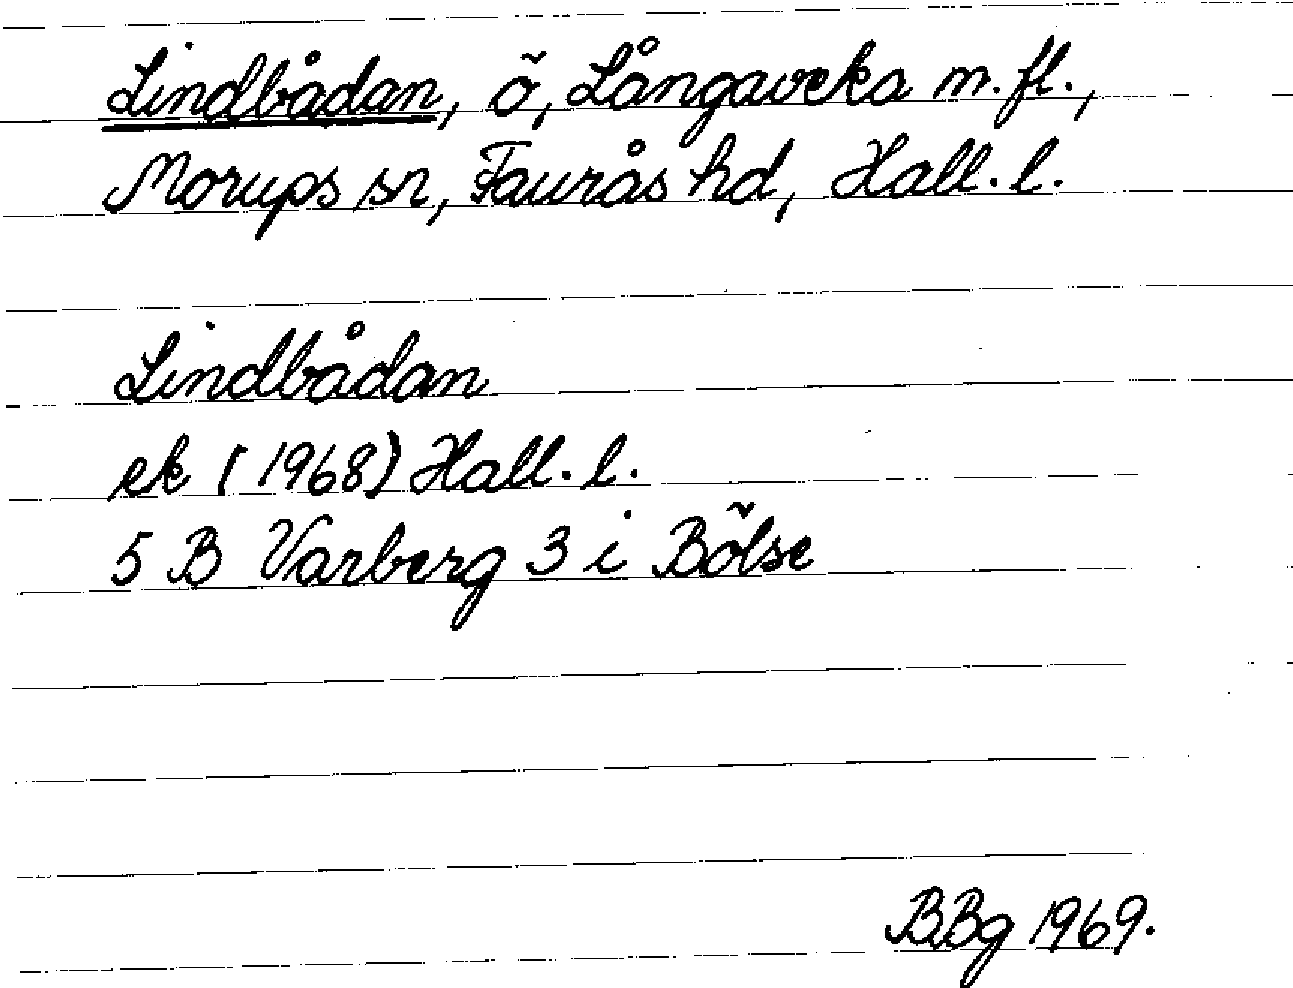 Lindbådan, ö, Långaveka m.fl.,
Morups sn, Faurås hd, Hall. l.
Lindbådan
ek (1968) Hall. l.
5 B Varberg 3 i Bölse
BBg 1969.